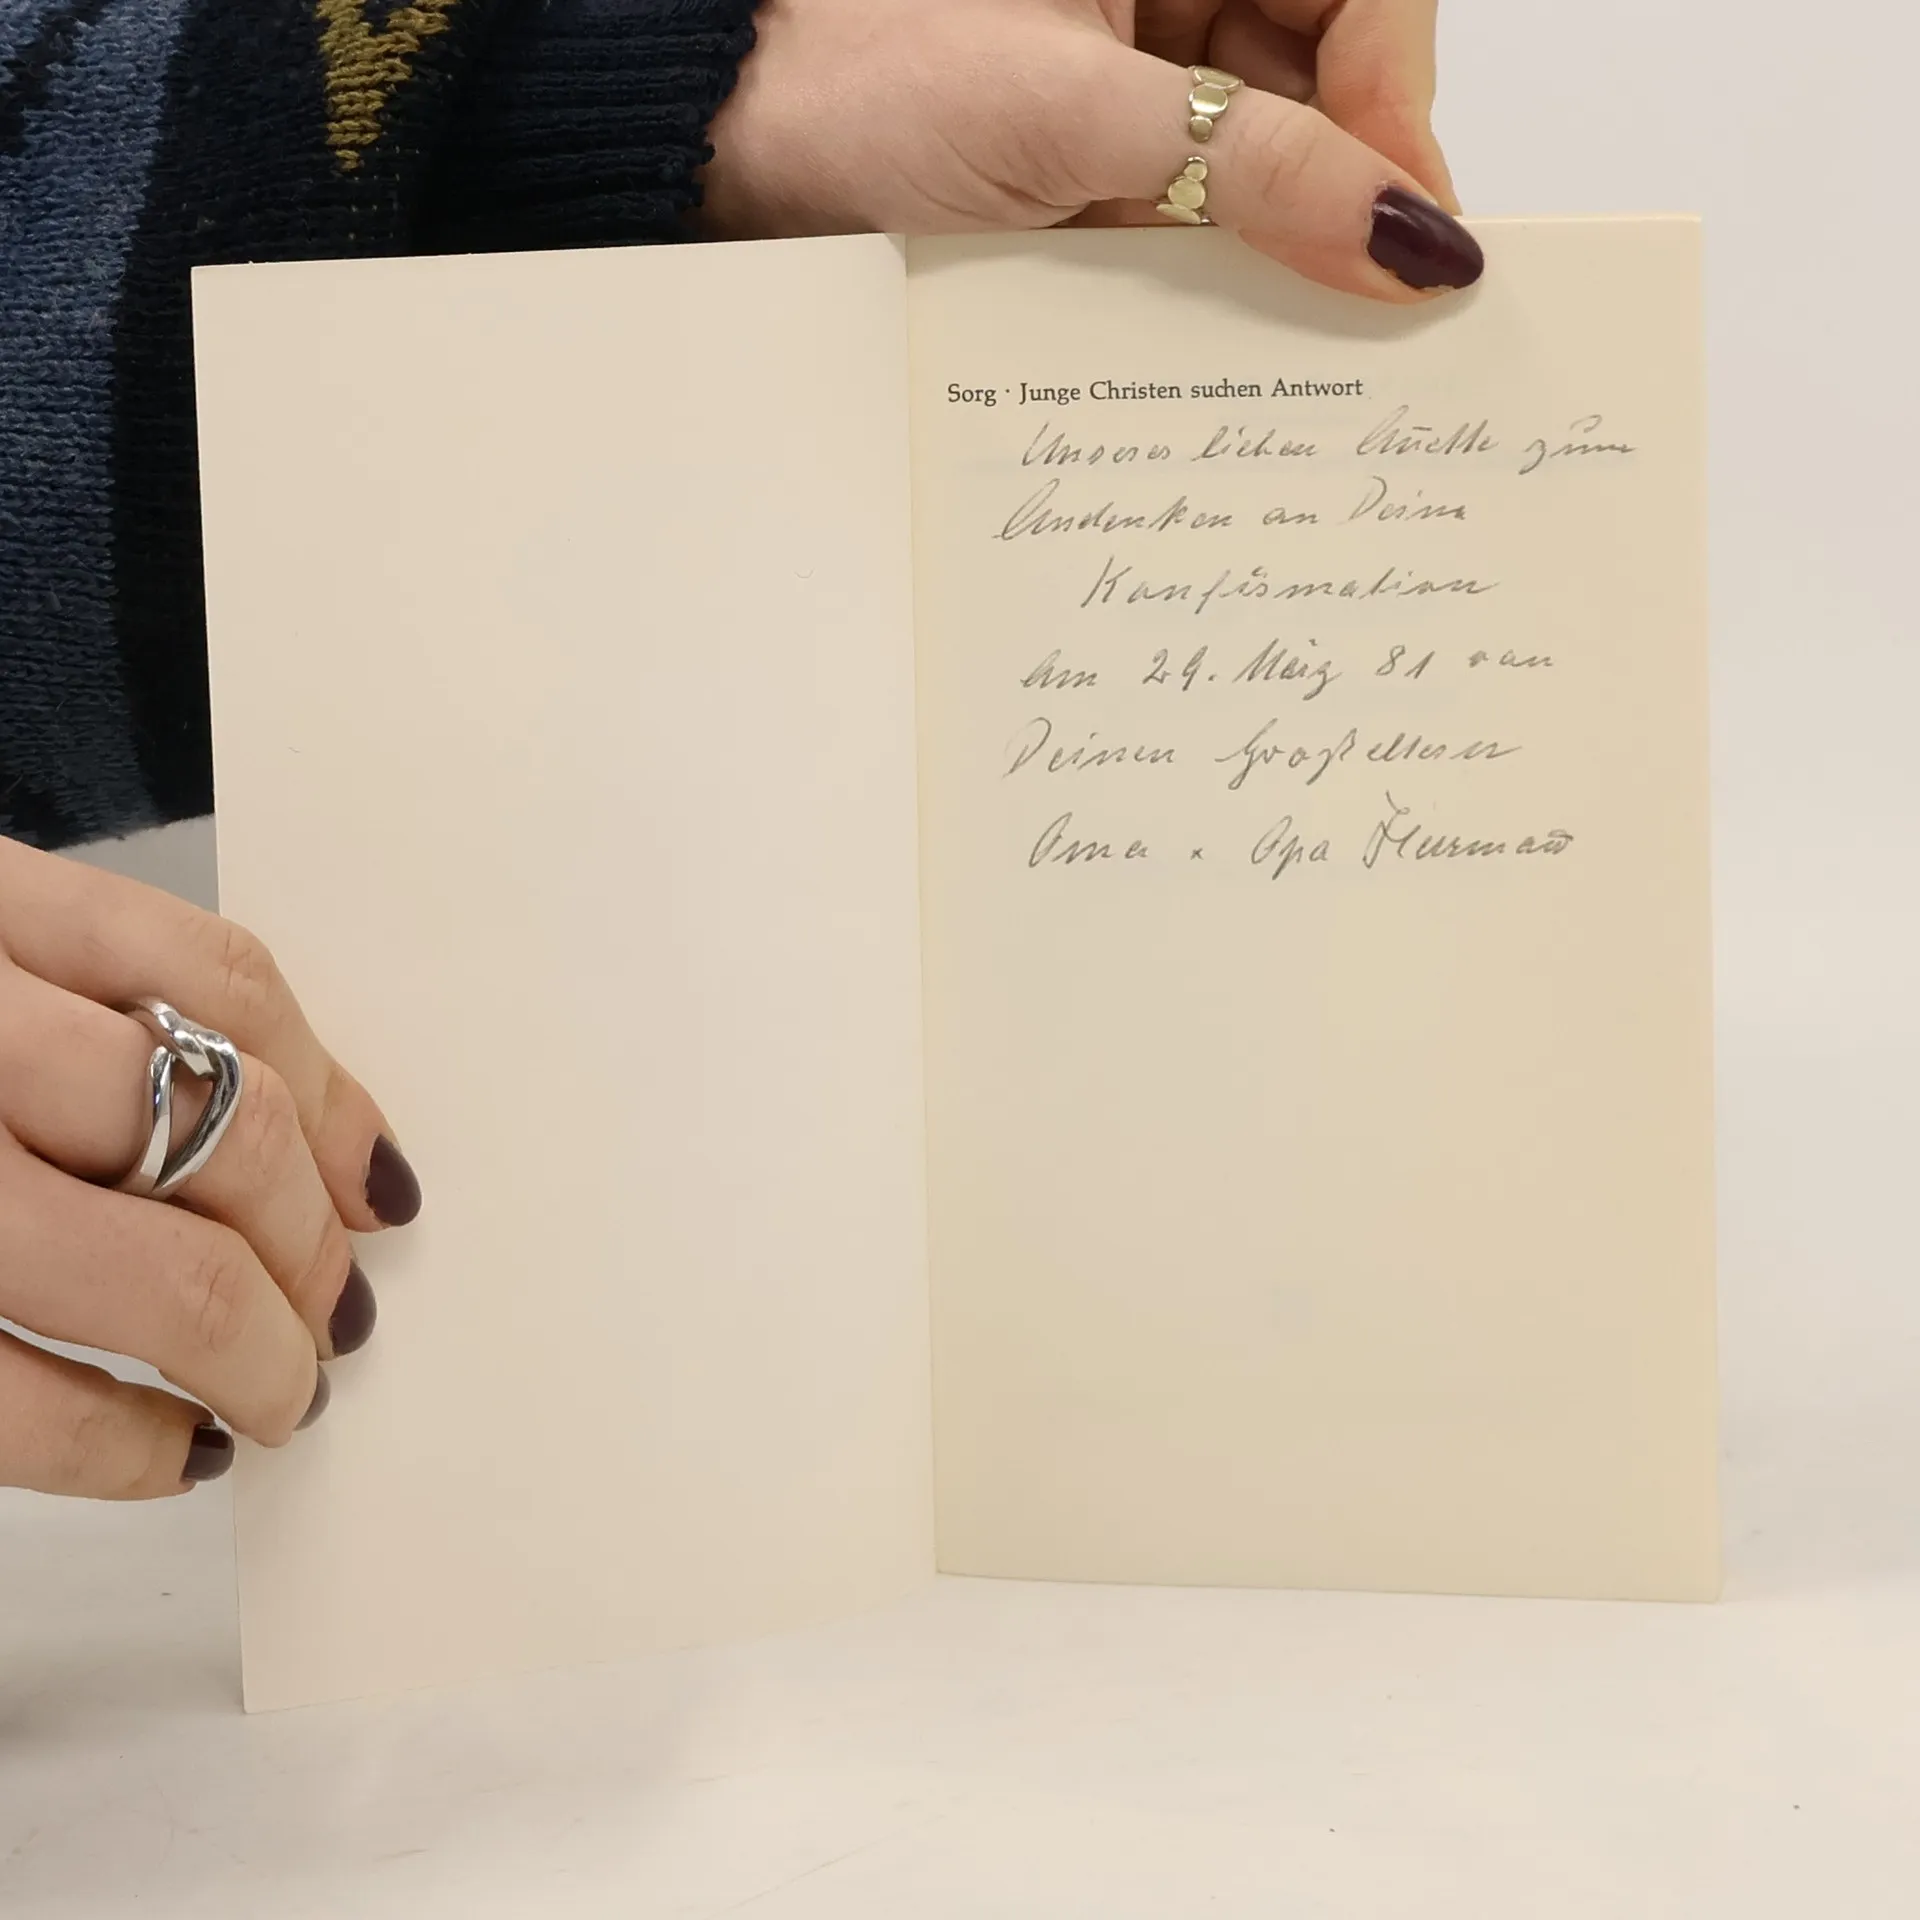 Sorg · Junge Christen suchen Antwort
Unserer lieben zum
Andenken an Deine
Konfirmation
Am 29. März 81 von
Deinen Großeltern
Oma + Opa